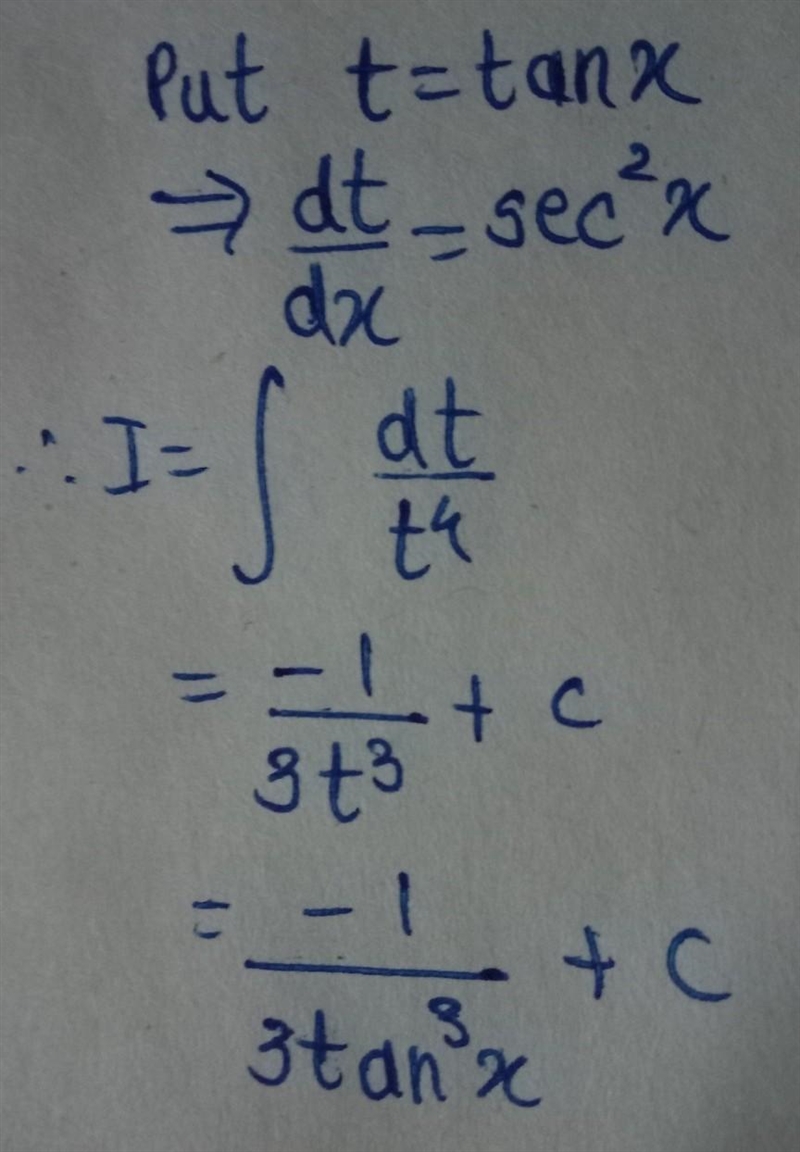 Put t = tan x
⇒ dt/dx = sec²x
∴ I = ∫ dt/t⁴
= -1/3t³ + c
= -1/3tan³x + c